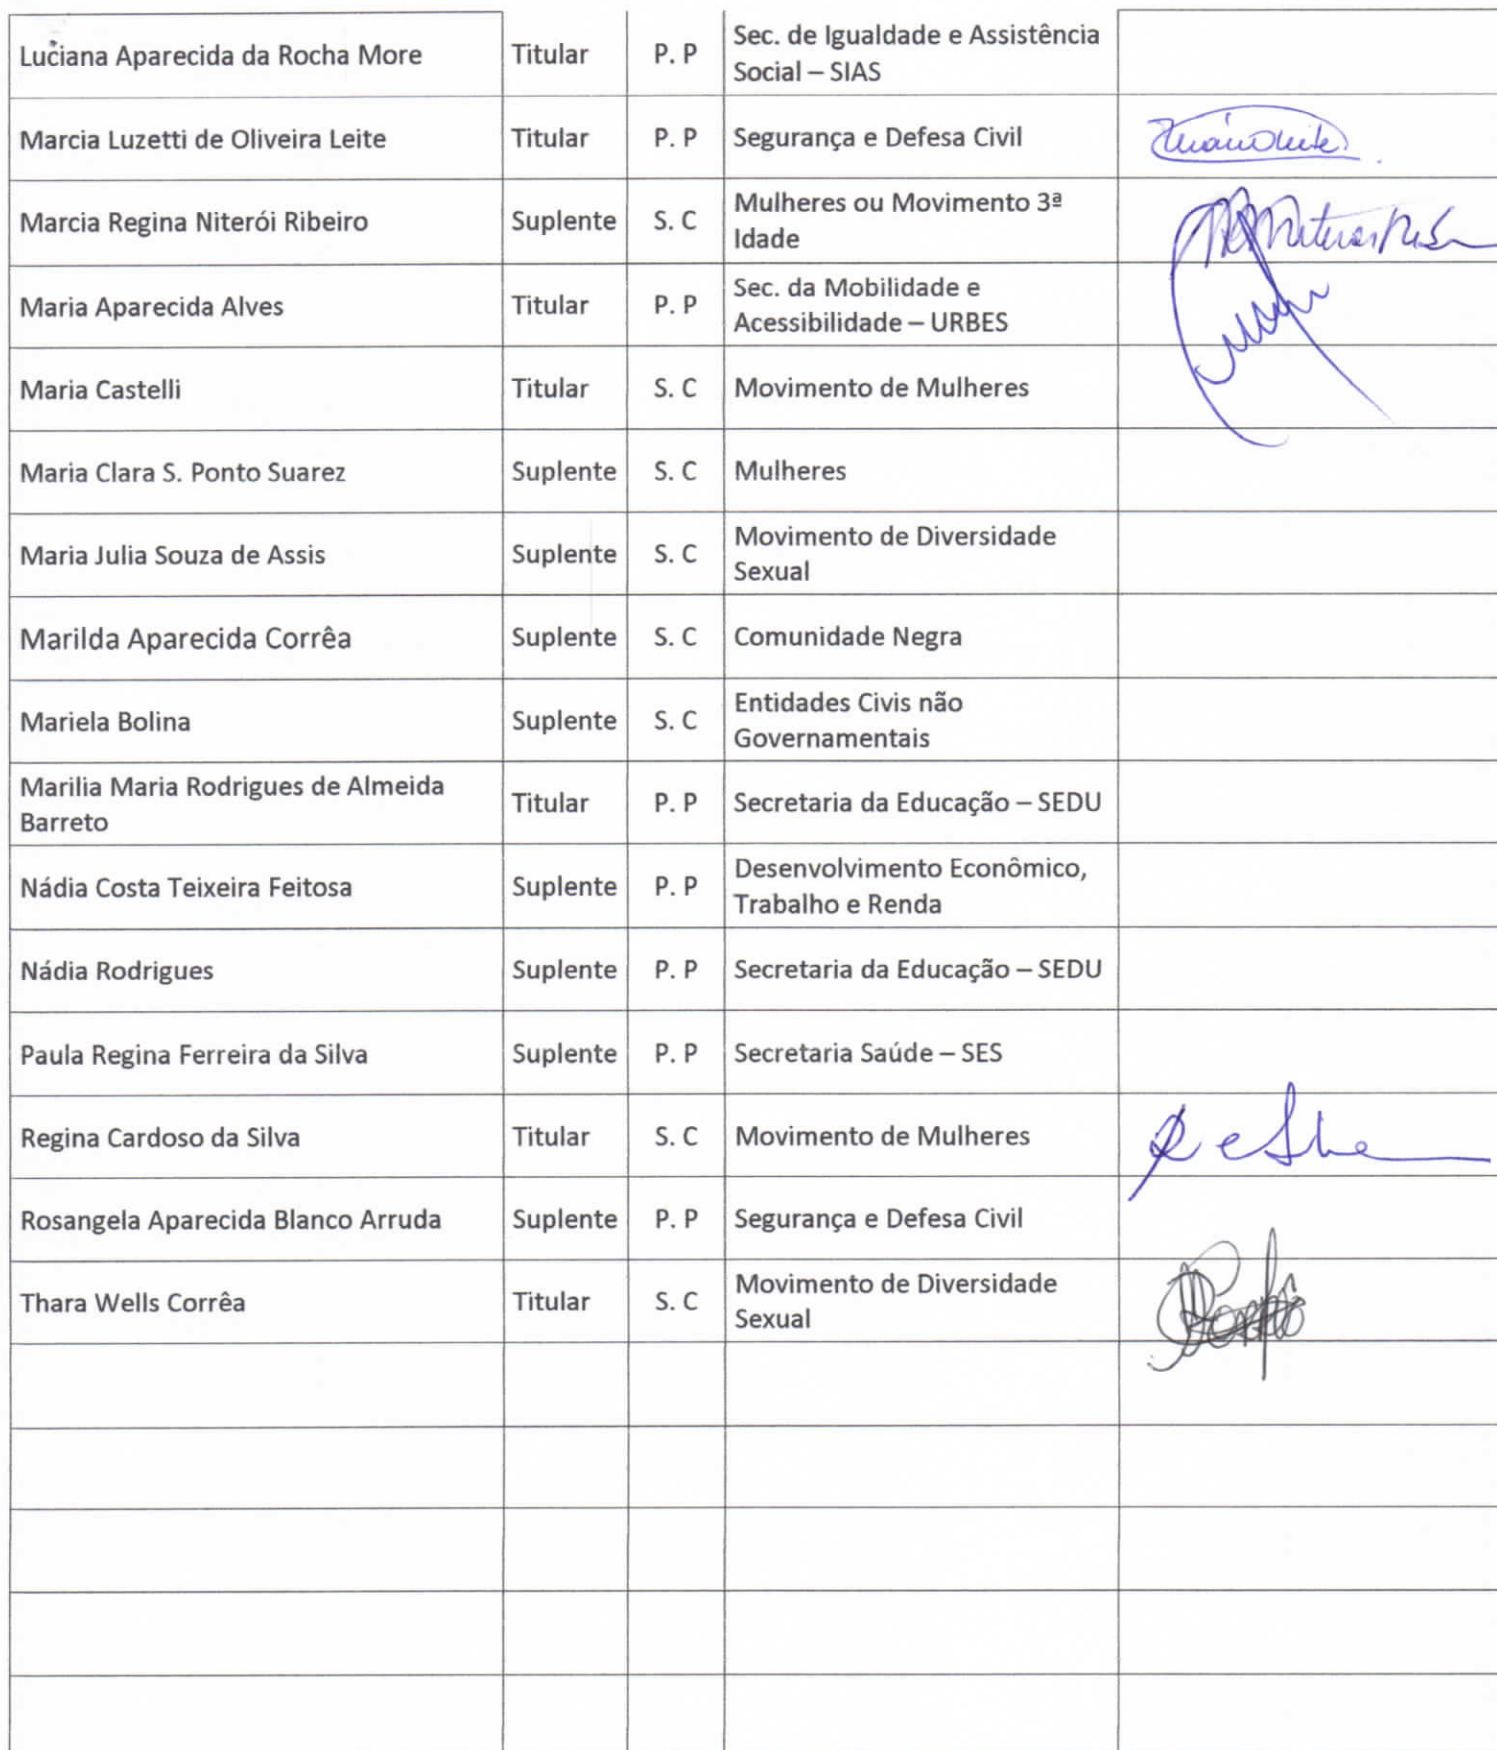 Luciana Aparecida da Rocha More Titular P. P Sec. de Igualdade e Assistência
Social – SIAS
Marcia Luzetti de Oliveira Leite Titular P. P Segurança e Defesa Civil
Marcia Regina Niterói Ribeiro Suplente S. C Mulheres ou Movimento 3ª
Idade
Maria Aparecida Alves Titular P. P Sec. da Mobilidade e
Acessibilidade – URBES
Maria Castelli Titular S. C Movimento de Mulheres
Maria Clara S. Ponto Suarez Suplente S. C Mulheres
Maria Julia Souza de Assis Suplente S. C Movimento de Diversidade
Sexual
Marilda Aparecida Corrêa Suplente S. C Comunidade Negra
Mariela Bolina Suplente S. C Entidades Civis não
Governamentais
Marilia Maria Rodrigues de Almeida
Barreto Titular P. P Secretaria da Educação – SEDU
Nádia Costa Teixeira Feitosa Suplente P. P Desenvolvimento Econômico,
Trabalho e Renda
Nádia Rodrigues Suplente P. P Secretaria da Educação – SEDU
Paula Regina Ferreira da Silva Suplente P. P Secretaria Saúde – SES
Regina Cardoso da Silva Titular S. C Movimento de Mulheres
Rosangela Aparecida Blanco Arruda Suplente P. P Segurança e Defesa Civil
Thara Wells Corrêa Titular S. C Movimento de Diversidade
Sexual